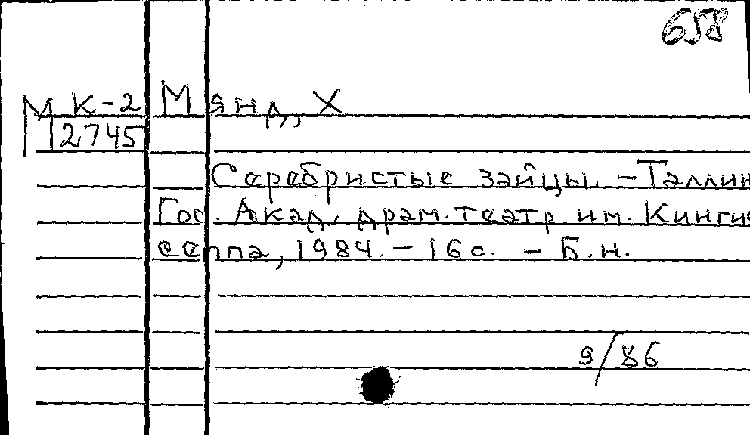 658
МК-2 Мянд, Х
12745
Серебристые зайцы. - Таллин
Гос. Акад. драм. театр им. Кингис
сеппа, 1984. - 16 с. - Б.н.
9/86